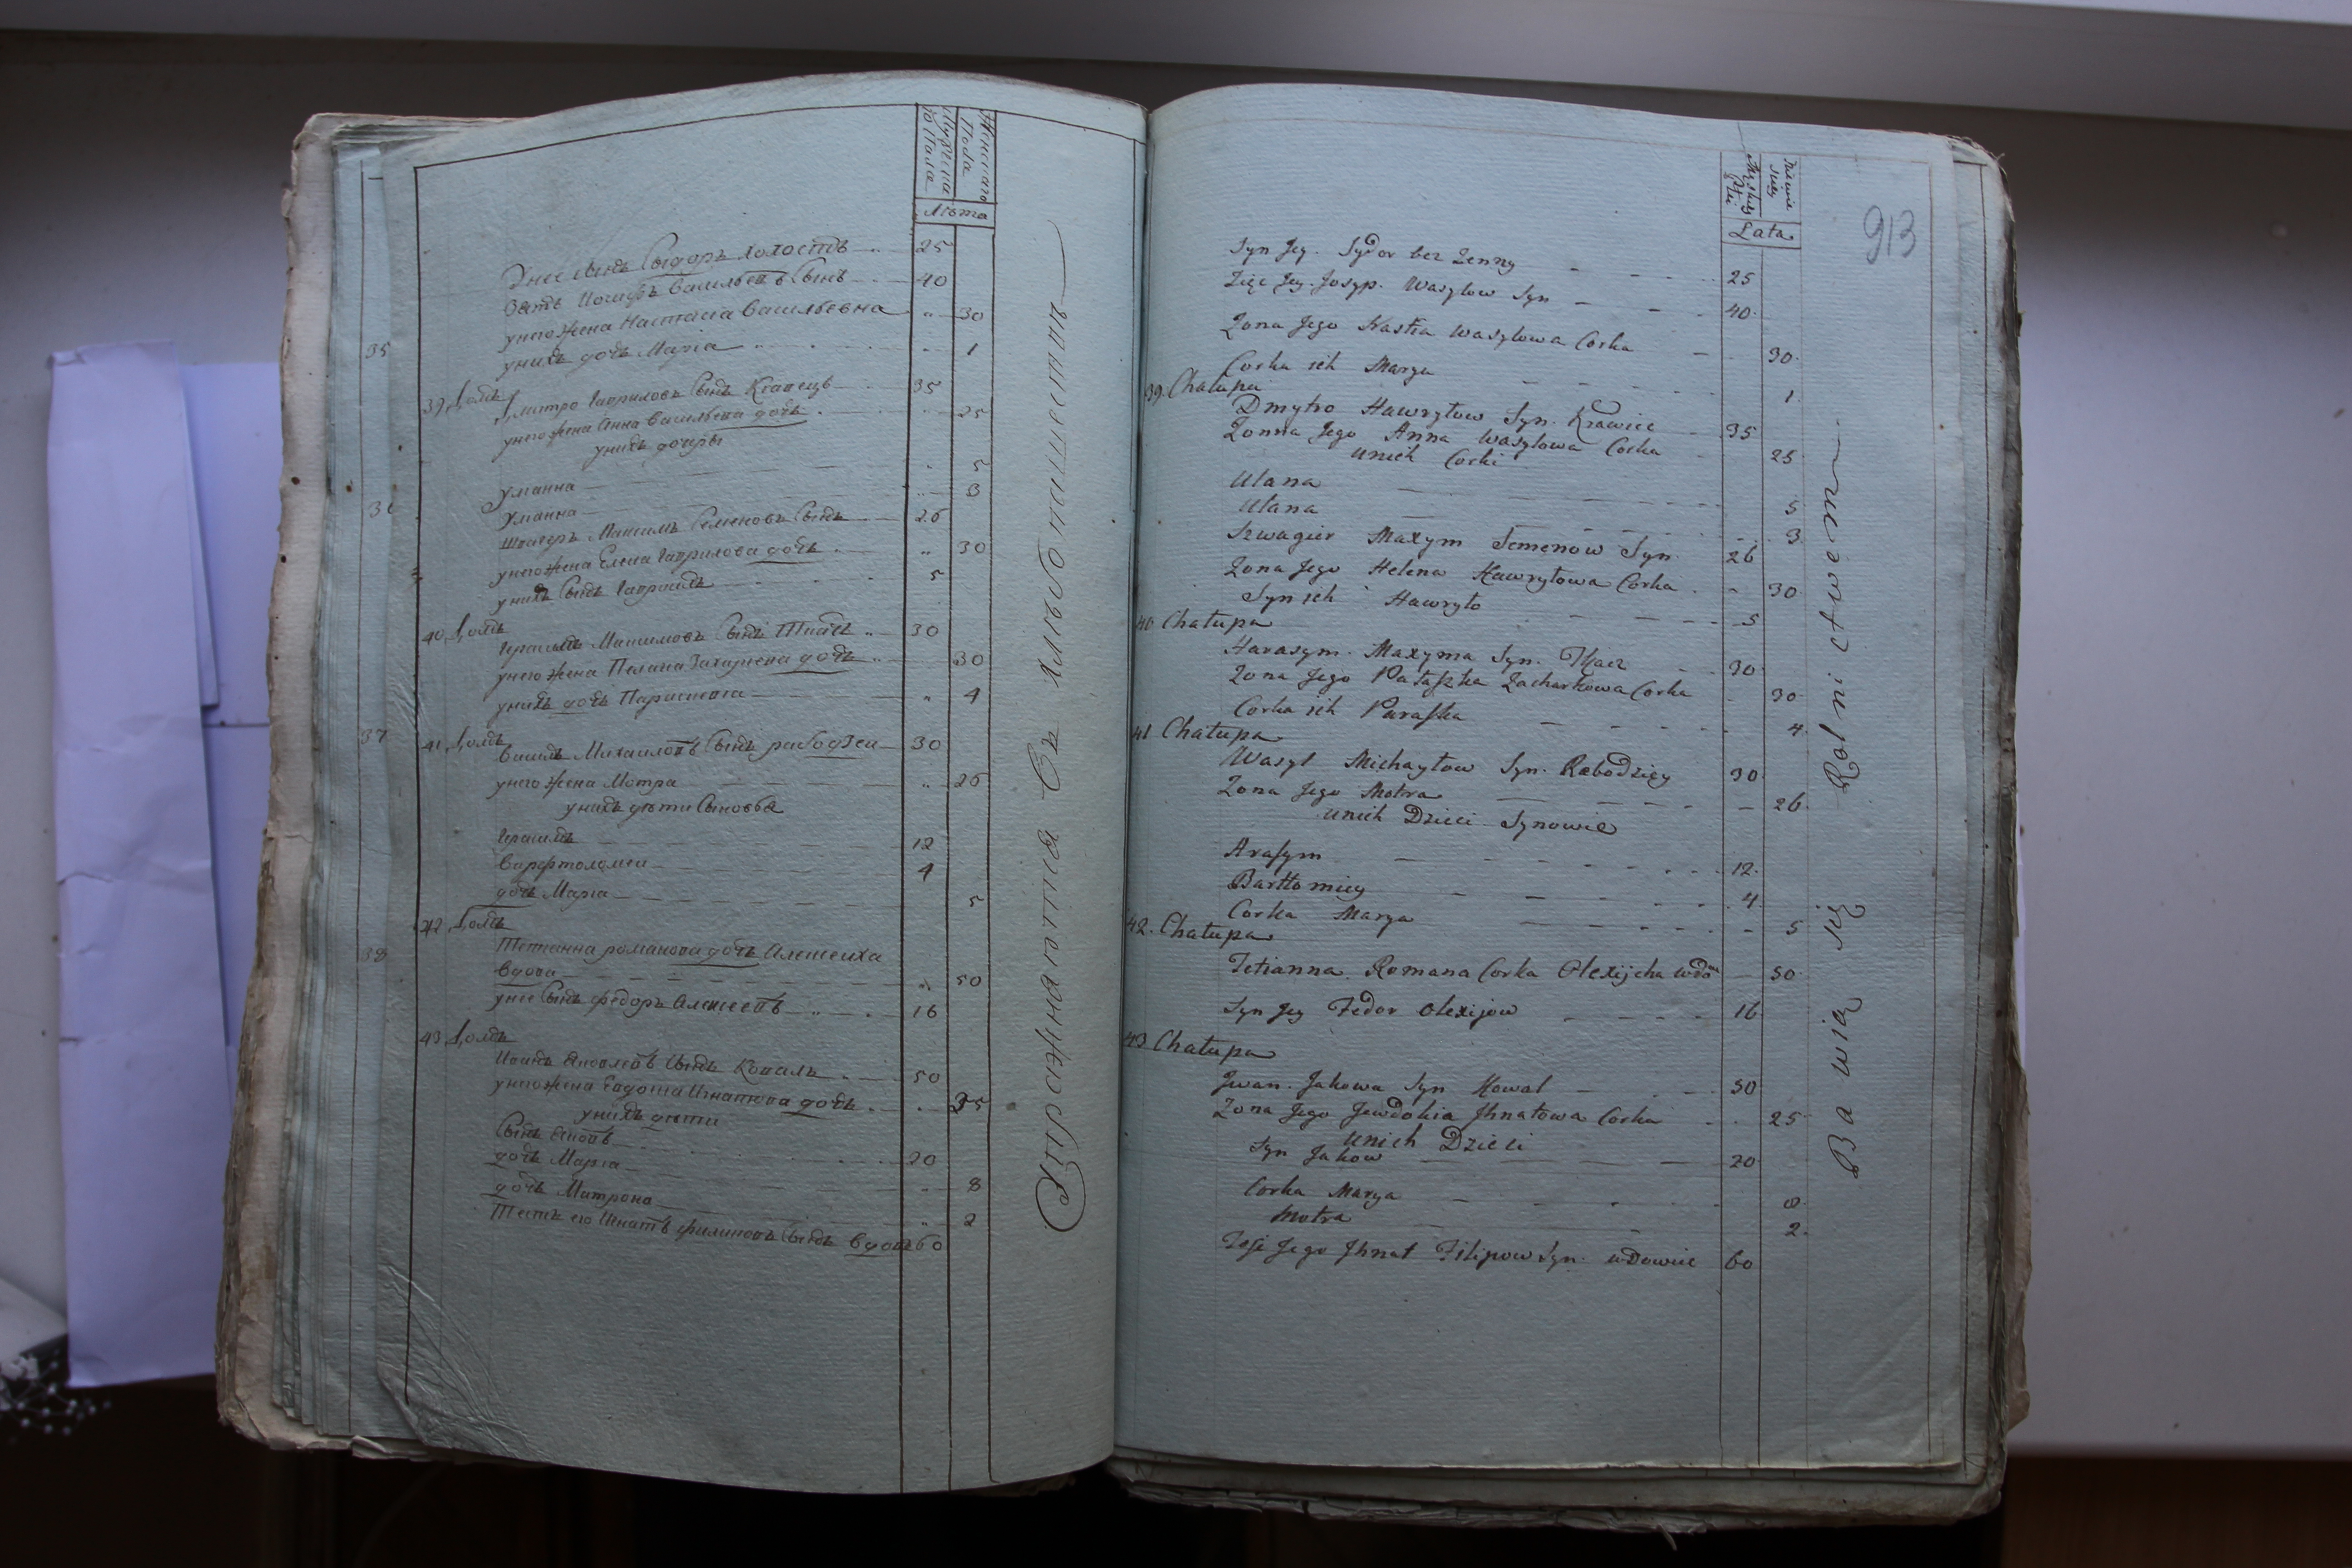 Мужеска
го Пола
Женскаго
Пола
Лѣта
Сидоръ холостъ 25
Зять Іосифъ Васильевъ Сынъ 40
унего жена Настасіа Васильевна 30
унихъ дочь Маріа 1
35
39 Домъ
Дмитро Гавриловъ Сынъ Кравецъ 35
унего жена Анна Васильева дочь 25
унихъ дочеры
Уліанна 5
Уліанна 3
Швагеръ Максимъ Семеновъ Сынъ 26
унего жена Елена Гаврилова дочь 30
унихъ Сынъ Гавріилъ 5
40 Домъ
Герасимъ Максимовъ Сынъ Ткачь 30
унего жена Пелагіа Захаріева дочь 30
унихъ дочь Парасковіа 4
37
41 Домъ
Василь Михайловъ Сынъ рабодзей 30
унего жена Мотра 26
унихъ дѣти Сыновья
Герасимъ 12
Варфтоломей 4
дочь Маріа 5
42 Домъ
38
Тетіанна романова дочь Алексеиха
вдова 50
унее Сынъ Федоръ Алексеевъ 16
43 Домъ
Иванъ Яковлевъ Сынъ Коваль 50
унего жена Евдокіа Игнатова дочь 25
унихъ дѣти
Сынъ Яковъ 20
дочь Маріа 8
дочь Матрона 2
Тесть его Игнатъ Филиповъ Сынъ вдовъ 60
Упражняются Въ хлѣбопашествѣ
Męskiey
Płci
Lata
913
Syn Jey. Sydor bez Zenny 25
Zięc Jey. Josyp. Wasylow Syn 40
Zona Jego Nastia Wasylowa Corka 30
Corka ich Marya 1
39. Chałupa
Dmytro Hawryłow Syn. Krawiec 35
Zonna Jego Anna Wasylowa Corka 25
unich Corki
Ulana 5
Ulana 3
Szwagier Maxym Semenow Syn 26
Zona Jego Helena Hawryłowa Corka 30
Syn ich Hawryło 5
40 Chałupa
Harasym. Maxyma Syn. Tkacz 30
Zona Jego Pałaszka Zacharkowa Corka 30
Corka ich Paraska 4
41 Chałupa
Wasyl Michayłow Syn. Rabodziey 30
Zona Jego Motra 26
unich Dzieci Synowie
Arasym 12
Bartłomiey 4
Corka Marya 5
42. Chałupa
Tetianna. Romana Corka Olexijcha wdowa 50
Syn Jey Fedor Olexijow 16
43 Chałupa
Jwan. Jakowa Syn Kowal 50
Zona Jego Jewdokia Jhnatowa Corka 25
unich Dzieci
Syn Jakow 20
Corka Marya 8
Motra 2
Teść Jego Jhnat Filipow Syn. wdowiec 60
Bawią się Rolnictwem